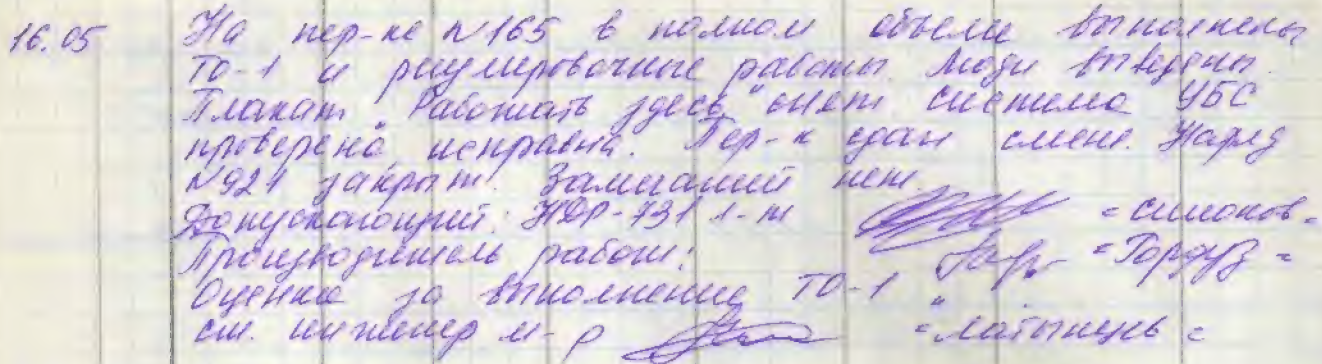 16.05 На пер-ке №165 в полном объеме выполнены
ТО-1 и регулировочные работы. Люди выведены.
Плакат "Работать здесь" снят система УБС
проверена, исправна. Пер-к сдан смене. Наряд
№921 закрыт. Замечаний нет.
Допускающий: 1-т =Симонов=
Производитель работ: =Гордуз=
Оценка за выполнение ТО-1 "
ст. инженер м-р =Латынцев=